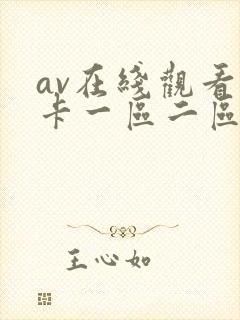 av在綫觀看
卡一區二區
王心如